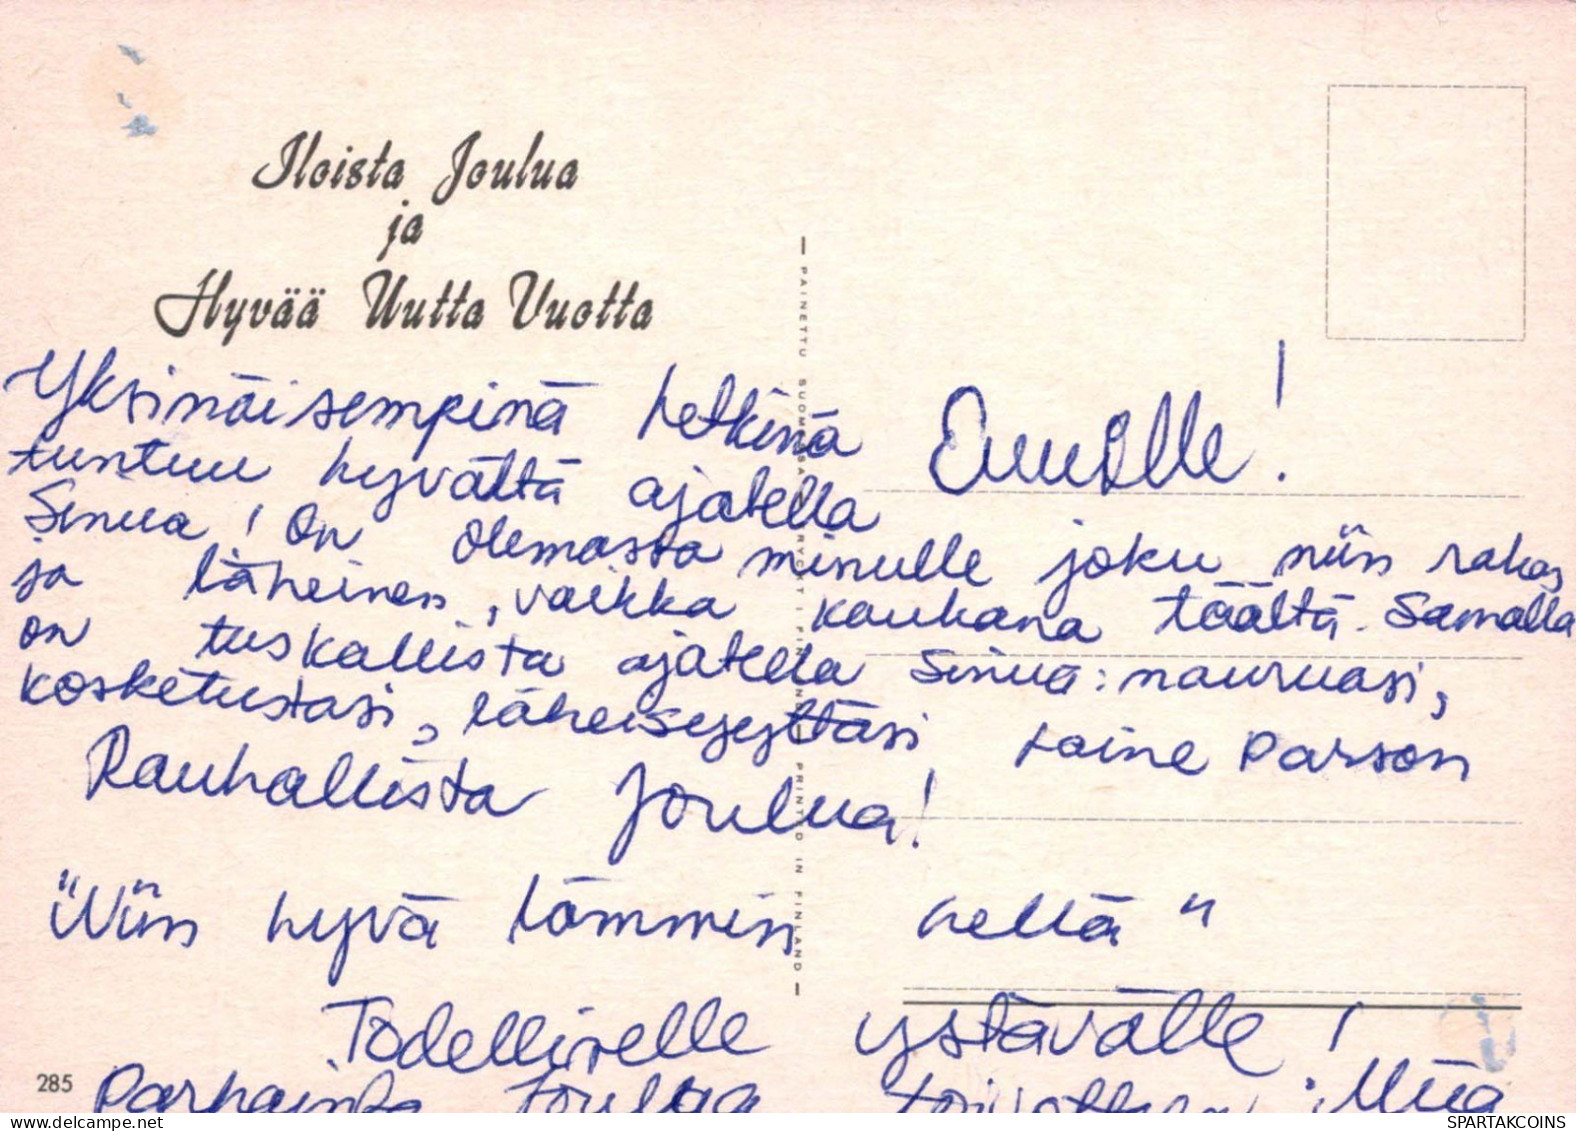 Iloista Joulua
ja
Hyvää Uutta Vuotta
PAINETTU SUOMESSA
PRINTED IN FINLAND
!
Yksinäisempinä hetkinä
tuntuu hyvältä ajatella
Sinua! On olemassa minulle joku niin rakas
ja läheinen, vaikka kaukana täältä. Samalla
on tuskallista ajatella Sinua: nauruasi,
kosketustasi, läheisyyttäsi
Rauhallista Joulua!
"Niin hyvä lämmin hellä"
Todelliselle ystävälle!
Parhainta Joulua toivottaen: Miia
285
WWW.SPARTAKCOINS.COM